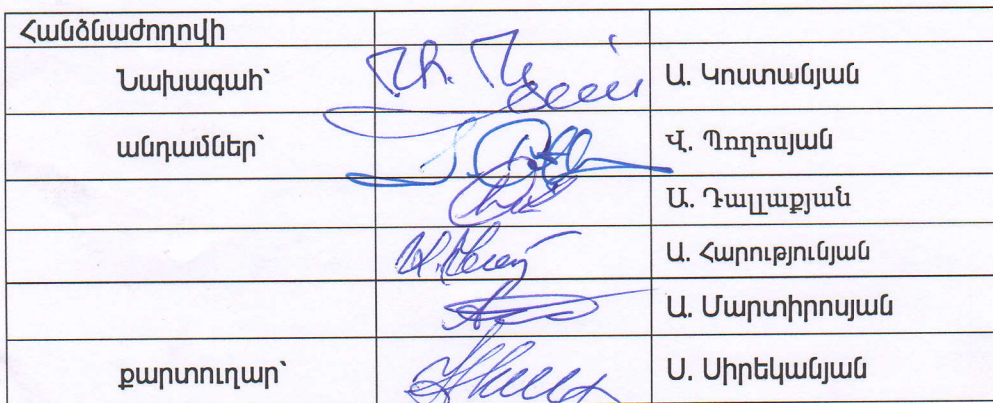 Հանձնաժողովի
Նախագահ՝ Ա. Կոստանյան
անդամներ՝ Վ. Պողոսյան
Ա. Դալլաքյան
Ա. Հարությունյան
Ա. Մարտիրոսյան
քարտուղար՝ Ս. Սիրեկանյան